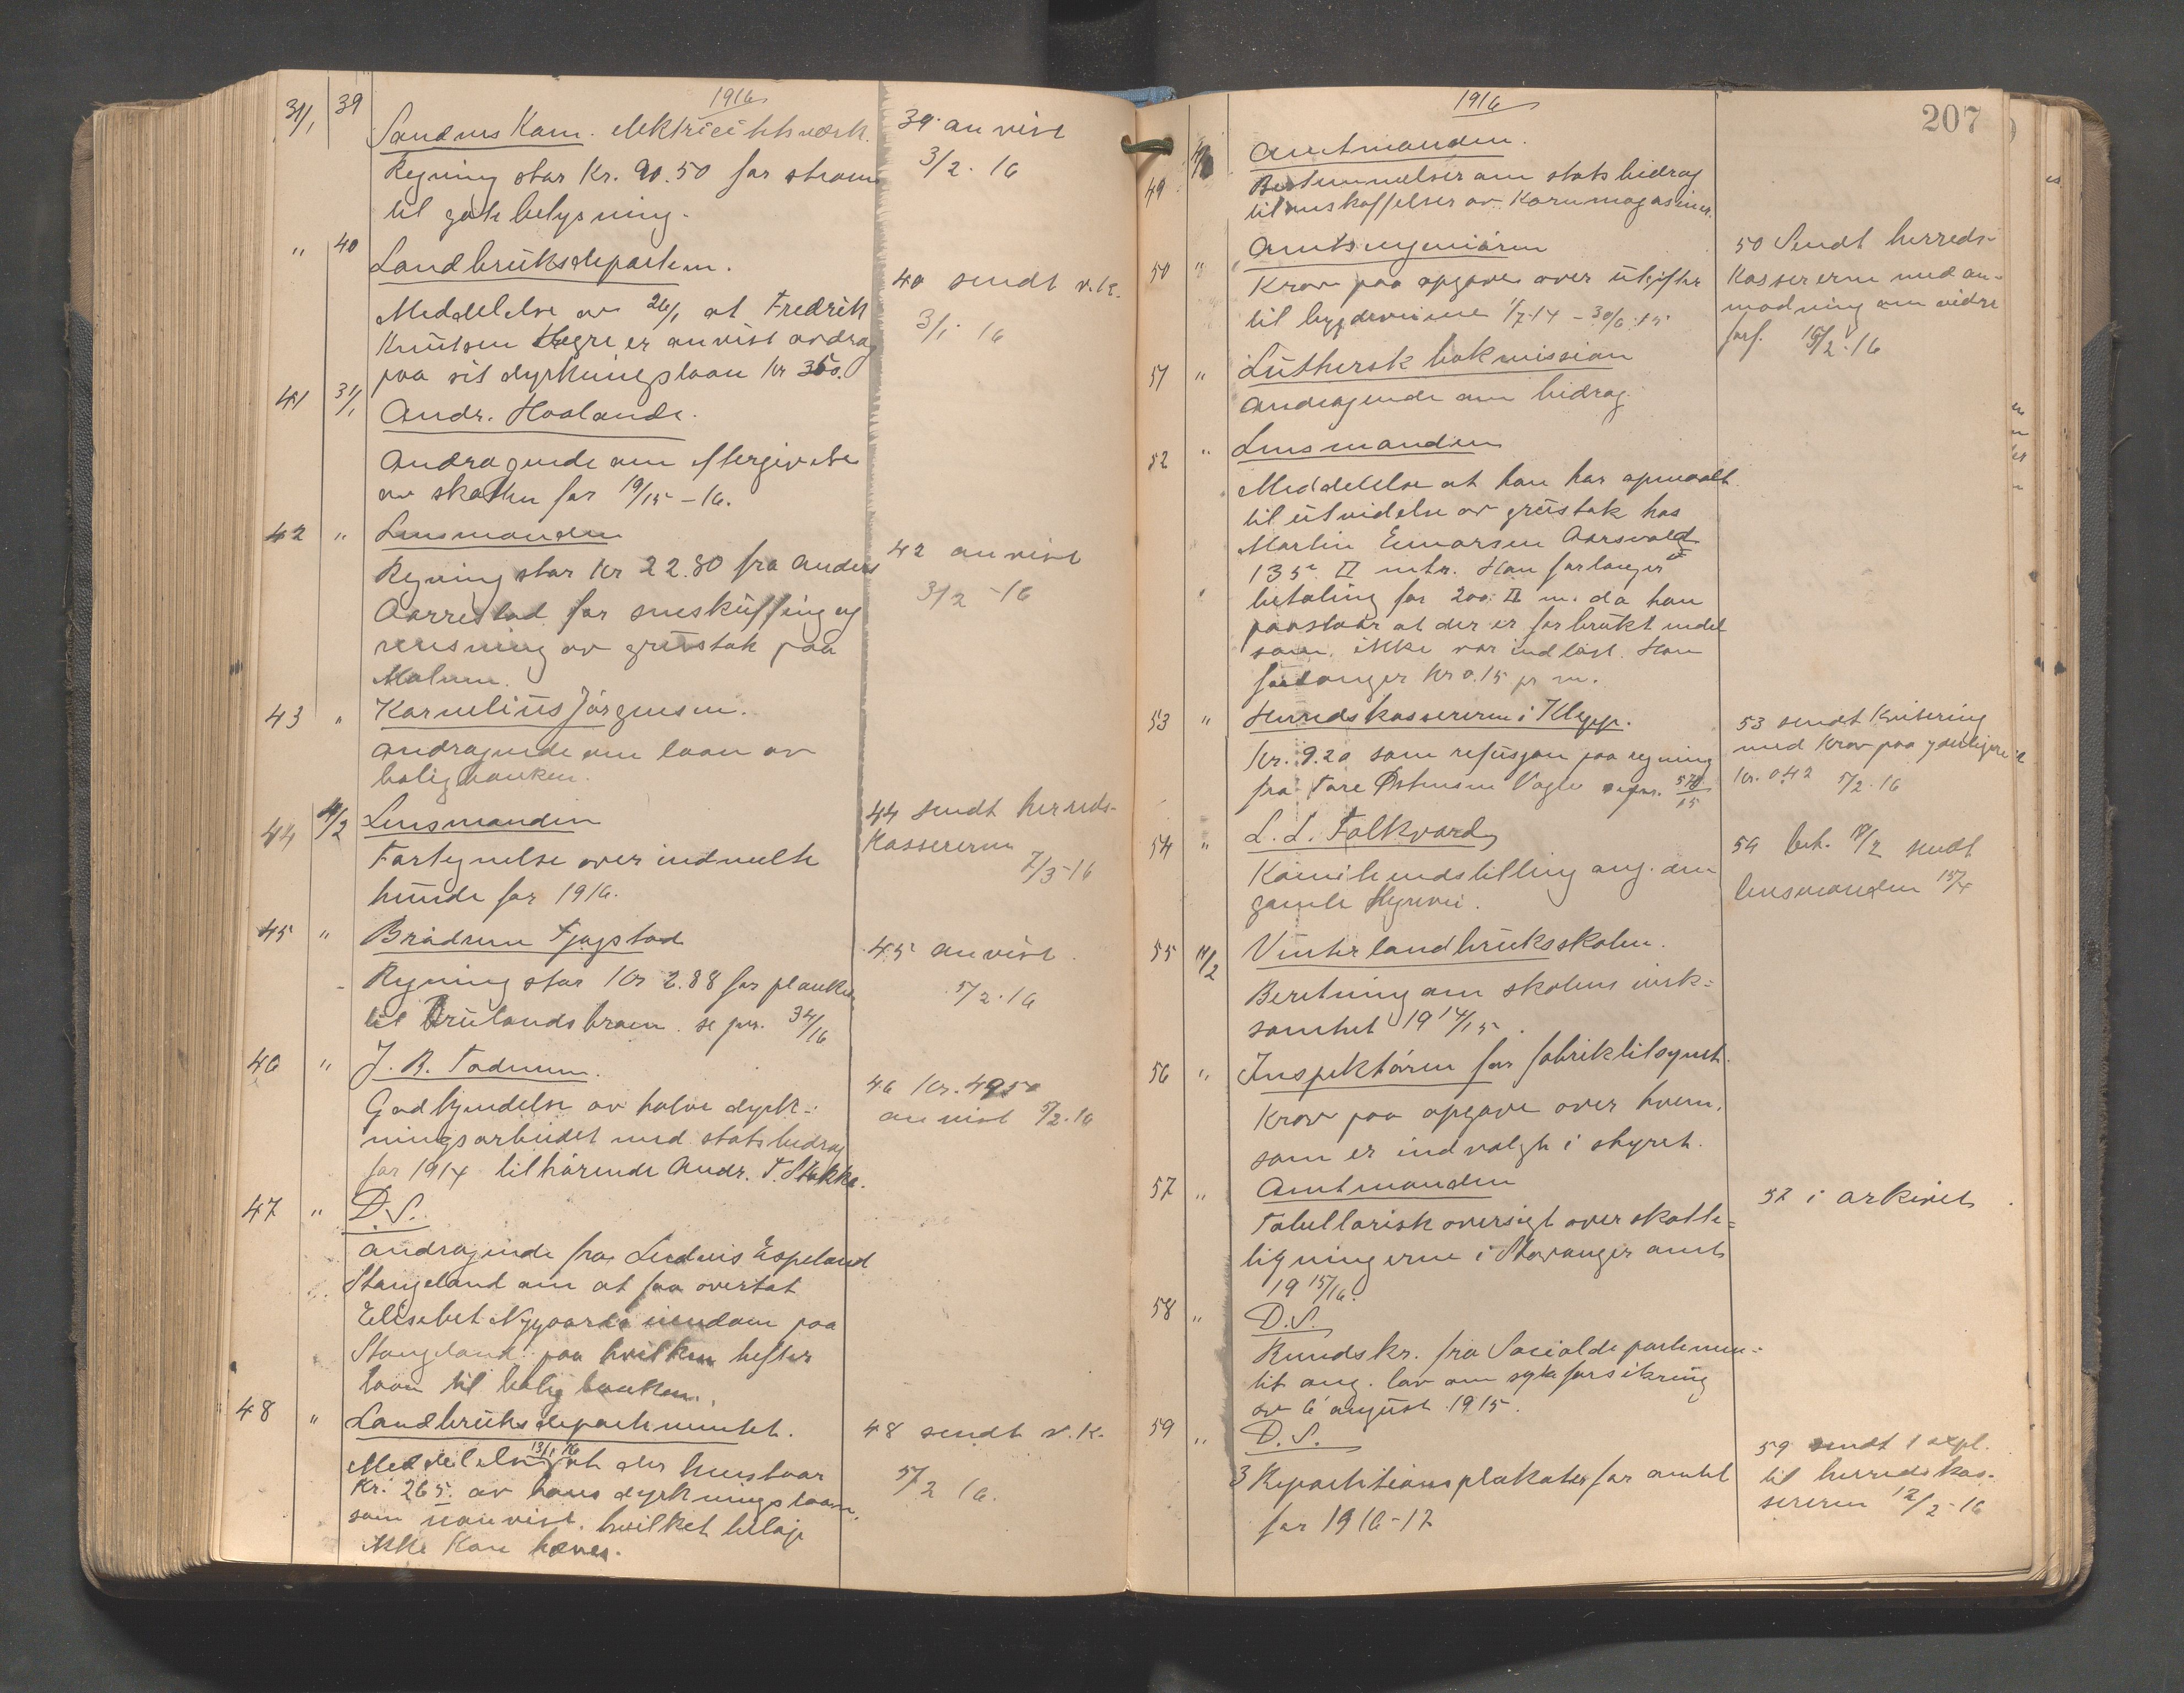 1916
31/1 39 Sandnes Kom. elektricitetsværk. 39 anvist
Regning stor Kr. 90.50 for strøm 3/2. 16
til gatebelysning.
" 40 Landbruksdepartem. 40 sendt v.k.
Meddelelse av 26/1 at Fredrik 3/1. 16
Knutsen Hegre er anvist avdrag
paa sit dyrkningslaan Kr 350.
41 31/1 Andr. Haaland.
Andragende om eftergivelse
av skatten for 19/15-16.
42 " Lensmanden 42 anvist
Regning stor Kr 22.80 fra Anders 3/2 - 16
Aarrestad for sneskuffing og
rensning av grustak paa
Malmen.
43 " Kornelius Jørgensen.
Andragende om laan av
boligbanken.
44 4/2 Lensmanden 44 sendt herreds-
Fortegnelse over indmeldte Kassereren
hunde for 1916. 7/3-16
45 " Brødrene Fjogstad 45 anvist
Regning stor Kr 2.88 for planker 5/2. 16
til Brulandsbroen. se jnr. 34/16
46 " J. R. Todnem. 46 Kr. 49.50
Godkjendelse av halve dyrk- anvist 5/2.16
ningsarbeidet med statsbidrag
for 1914 tilhørende Andr. T. Stokka.
47 " D.S.
Andragende fra Ludvis Espeland
Stangeland om at faa overtat
Elisabet Nygaards eiendom paa
Stangeland paa hvilken hefter
laan til boligbanken.
48 " Landbruksdepartementet. 48 sendt v.K.
Meddelelse 13/1 16 at der henstaar 5/2 16.
Kr. 265. av hans dyrkningslaan
som uanvist. hvilket beløp
ikke kan hæves.
1916
207
49 4/2 Amtmanden.
Bestemmelser om statsbidrag
til anskaffelser av Kornmagasiner.
50 " Amtsingeniøren 50 Sendt herreds-
Krav paa opgave over utgifter Kassereren med an-
til bygdeveiene 1/7.14 - 30/6.15 modning om vidre
forf. 15/2.16
51 " Luthersk bokmission
Andragende om bidrag.
52 " Lensmanden
Meddelelse at han har opmaalt
til utvidelse av grustak hos
Martin Einarsen Aarsvold
135 □ mtr. Han forlanger
betaling for 200 □ m. da han
paastaar at der er forbrukt endel
som ikke var indløst. Han
forlanger Kr 0.15 pr m.
53 " Herredskassereren i Klepp. 53 sendt Kvitering
Kr. 9.20 som refusjon paa regning med Krav paa yderligere
fra Tore Østensen Vagle se jnr. 578/15 Kr. 0.42 5/2. 16
54 " L. L. Folkvord 54 beh. 18/2 sendt
Komiteindstilling ang. den lensmanden 15/4
gamle Hynevei.
55 11/2 Vinterlandbruksskolen.
Beretning om skolens virk-
somhet 1914/15.
56 " Inspektøren for fabriktilsynet.
Krav paa opgave over hvem
som er indvalgt i styret.
57 " Amtmanden 57 i arkivet
Tabellarisk oversigt over skatte-
ligningerne i Stavanger amt
1915/16.
58 " D.S.
Rundskr. fra Socialdepartemen-
tet ang. lov om sykeforsikring
av 6 august 1915.
59 " D.S. 59 sendt 1 expl.
3 Repartitionsplakater for amtet til herredskas-
for 1916-17 sereren 12/2-16